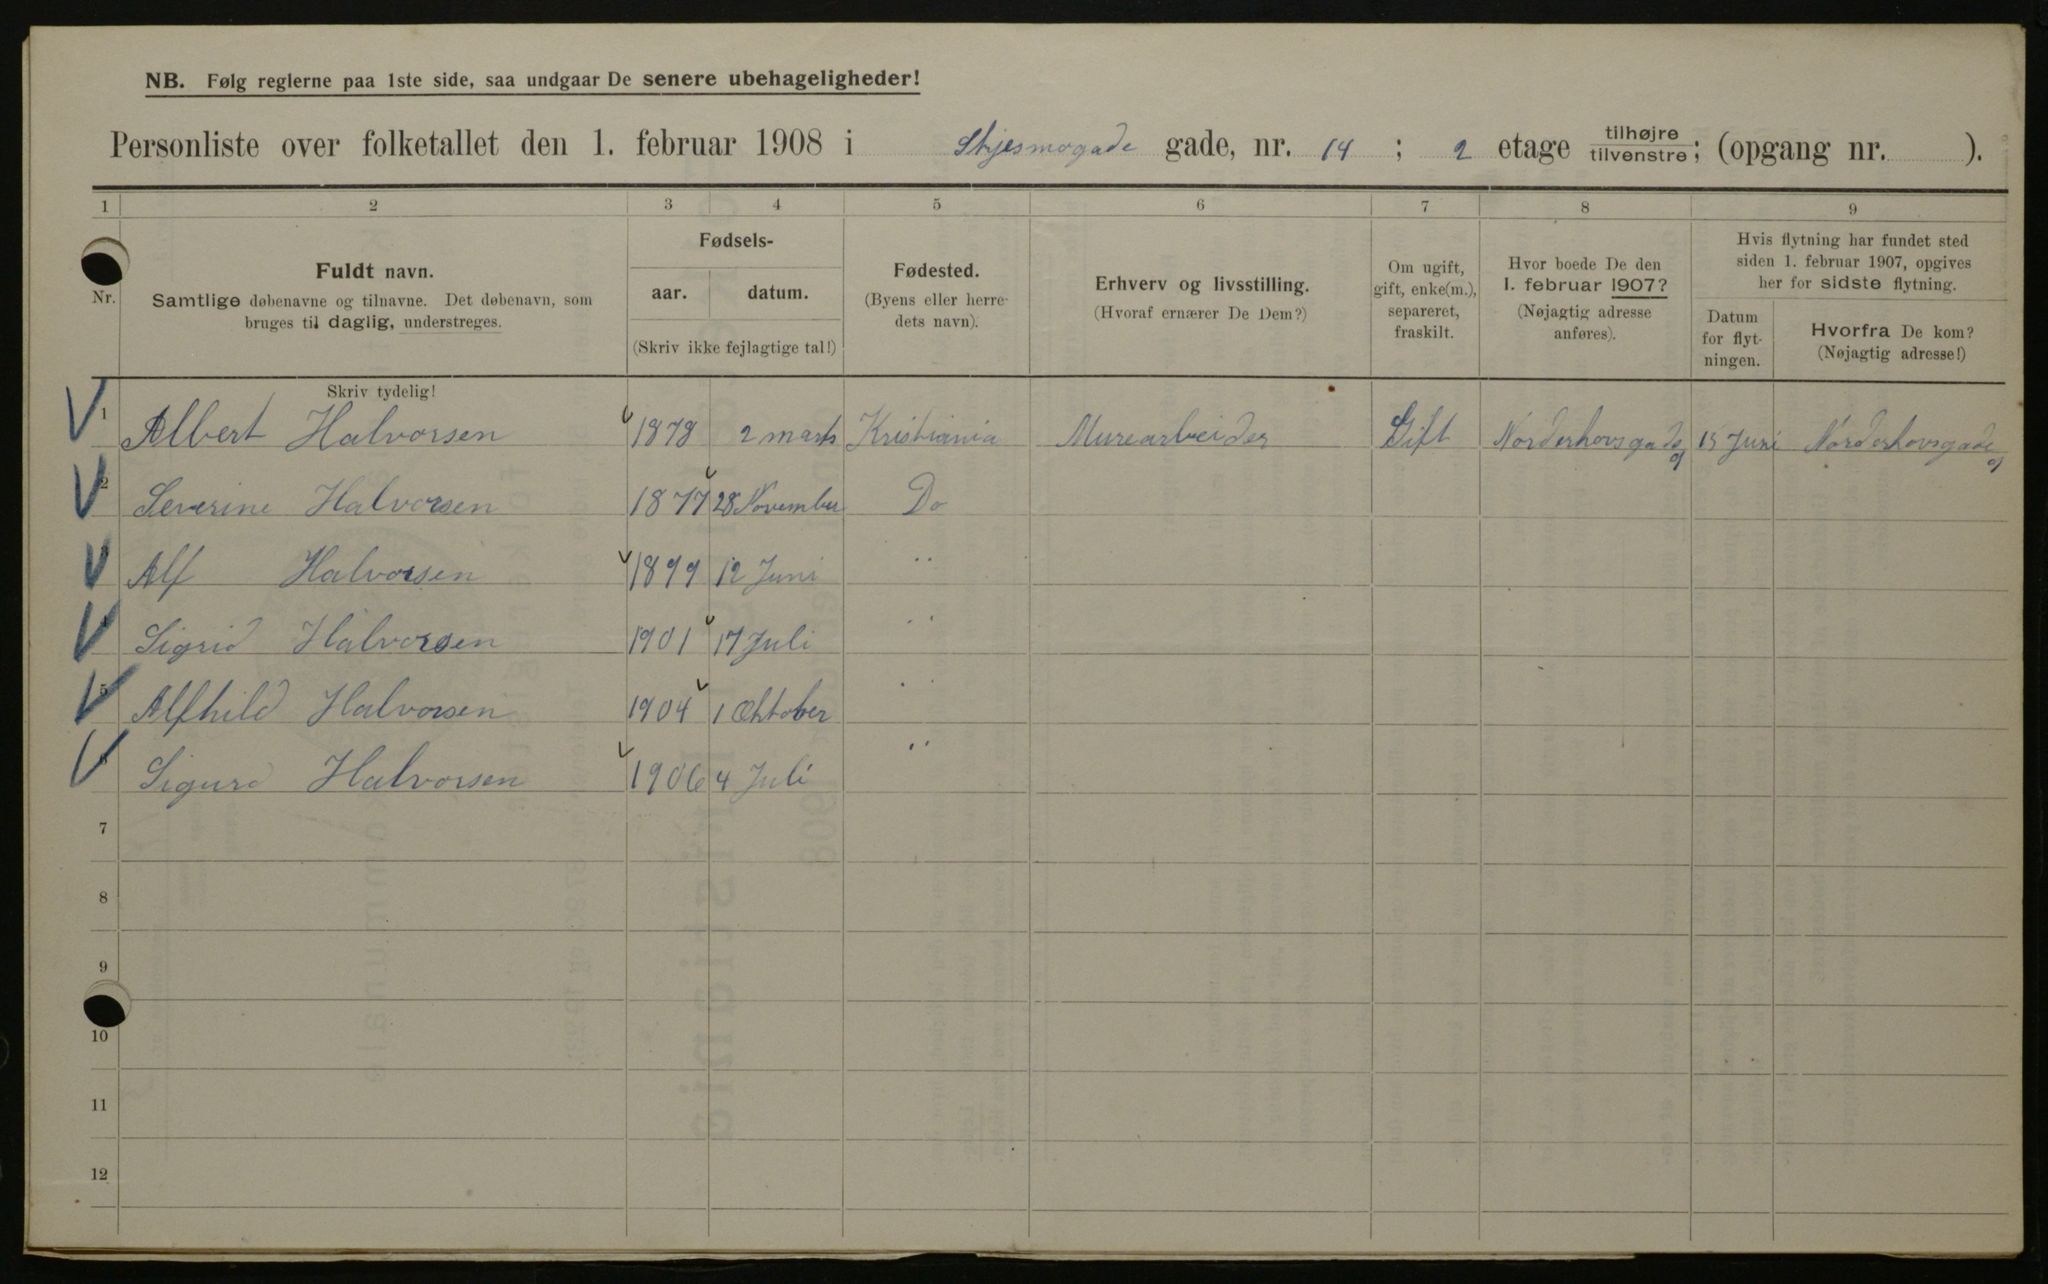 NB. Følg reglerne paa 1ste side, saa undgaar De senere ubehageligheder!
Personliste over folketallet den 1. februar 1908 i Skjesmogade gade, nr. 14 ; 2 etage tilhøjre tilvenstre; (opgang nr. ).
1 2 3 4 5 6 7 8 9
Nr.
Fuldt navn.
Samtlige døbenavne og tilnavne. Det døbenavn, som
bruges til daglig, understreges.
Skriv tydelig!
Fødsels-
aar. datum.
(Skriv ikke fejlagtige tal!)
Fødested.
(Byens eller herre-
dets navn).
Erhverv og livsstilling.
(Hvoraf ernærer De Dem?)
Om ugift,
gift, enke(m.),
separeret,
fraskilt.
Hvor boede De den
1. februar 1907?
(Nøjagtig adresse
anføres).
Hvis flytning har fundet sted
siden 1. februar 1907, opgives
her for sidste flytning.
Datum
for flyt-
ningen.
Hvorfra De kom?
(Nøjagtig adresse!)
1 Albert Halvorsen 1878 2 marts Kristiania Murearbeider Gift Norderhovsgade 9 15 Juni Norderhovsgade 9
2 Severine Halvorsen 1877 28 November Do
3 Alf Halvorsen 1899 12 Juni "
4 Sigrid Halvorsen 1901 17 Juli "
5 Alfhild Halvorsen 1904 1 Oktober "
6 Sigurd Halvorsen 1906 4 Juli "
7
8
9
10
11
12